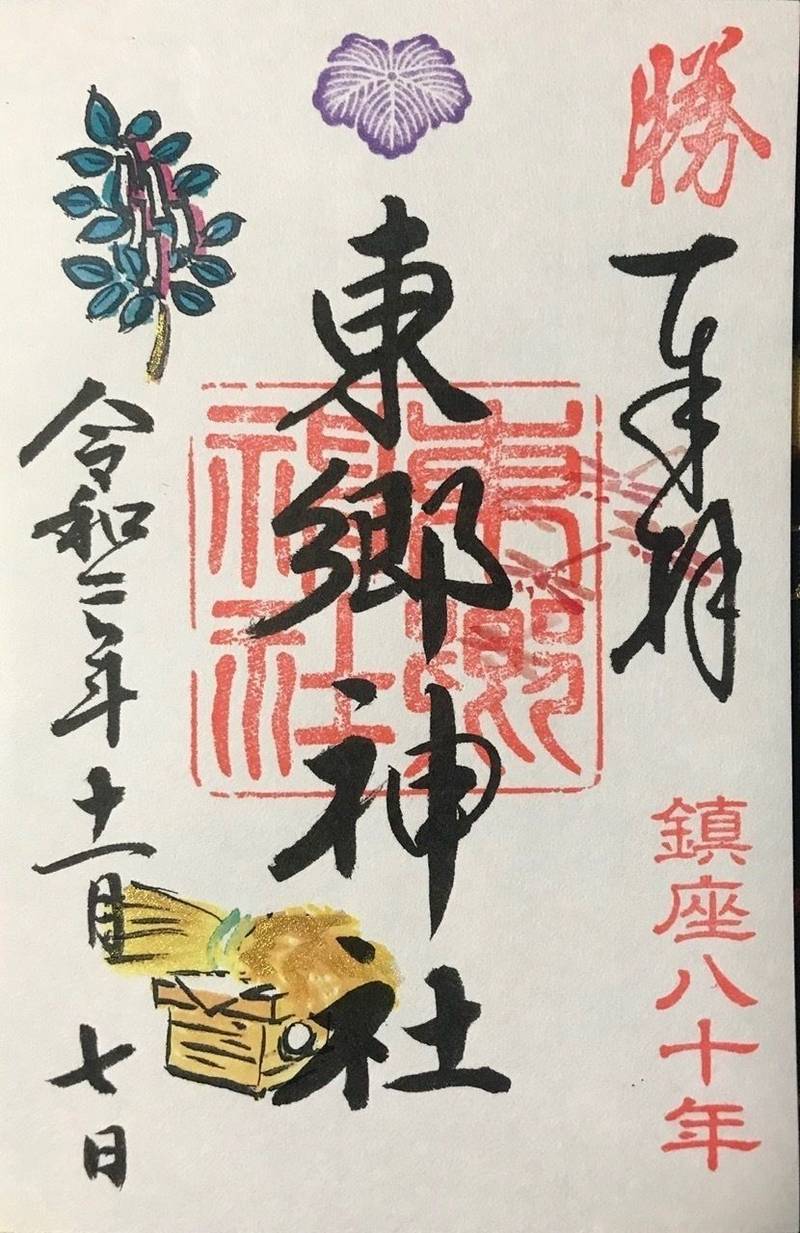 勝
奉拝
鎮座八十年
東郷神社
東郷
神社
令和二年十一月七日